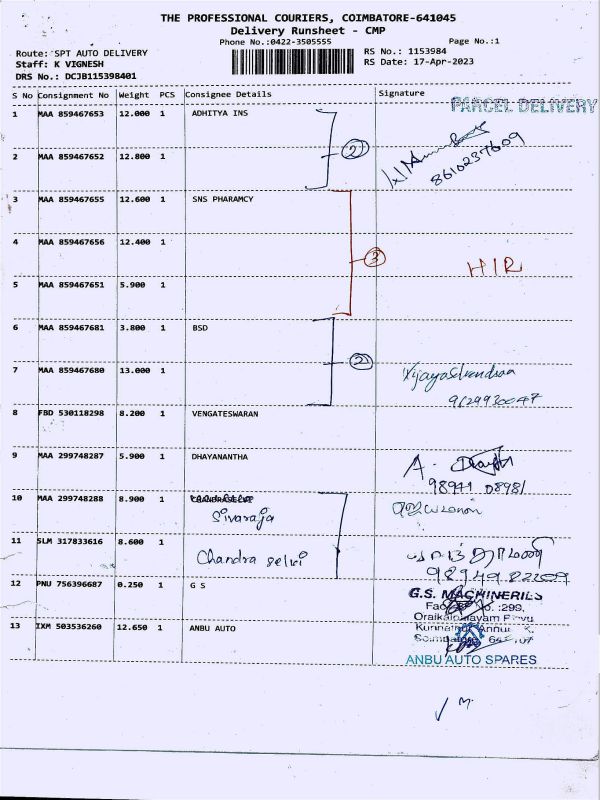 THE PROFESSIONAL COURIERS, COIMBATORE-641045
Delivery Runsheet - CMP
Phone No.:0422-3505555 Page No.:1
Route: SPT AUTO DELIVERY RS No.: 1153984
Staff: K VIGNESH RS Date: 17-Apr-2023
DRS No.: DCJB115398401
S No Consignment No Weight PCS Consignee Details Signature
PARCEL DELIVERY
1 MAA 859467653 12.000 1 ADHITYA INS
2
2 MAA 859467652 12.800 1
8610237609
3 MAA 859467655 12.600 1 SNS PHARAMCY
4 MAA 859467656 12.400 1
3 HIR
5 MAA 859467651 5.900 1
6 MAA 859467681 3.800 1 BSD
2
7 MAA 859467680 13.000 1
8 FBD 530118298 8.200 1 VENGATESWARAN
9 MAA 299748287 5.900 1 DHAYANANTHA
A.
98941 08981
10 MAA 299748288 8.900 1
Sivaraja
11 SLM 317833616 8.600 1
Chandra selvi
12 PNU 756396687 0.250 1 G S
G.S. MACHINERIES
13 IXM 503536260 12.650 1 ANBU AUTO
ANBU AUTO SPARES